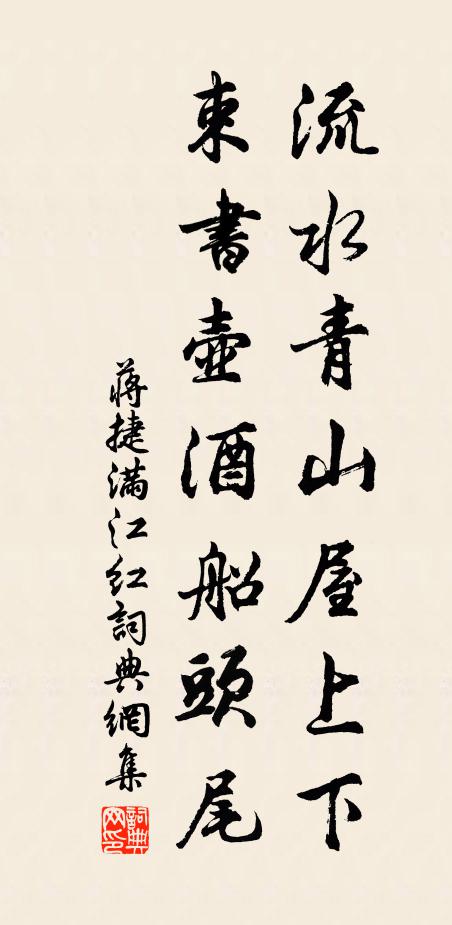 流水青山屋上下
束書壺酒船頭尾
蔣捷滿江紅詞典網集
詞典網印